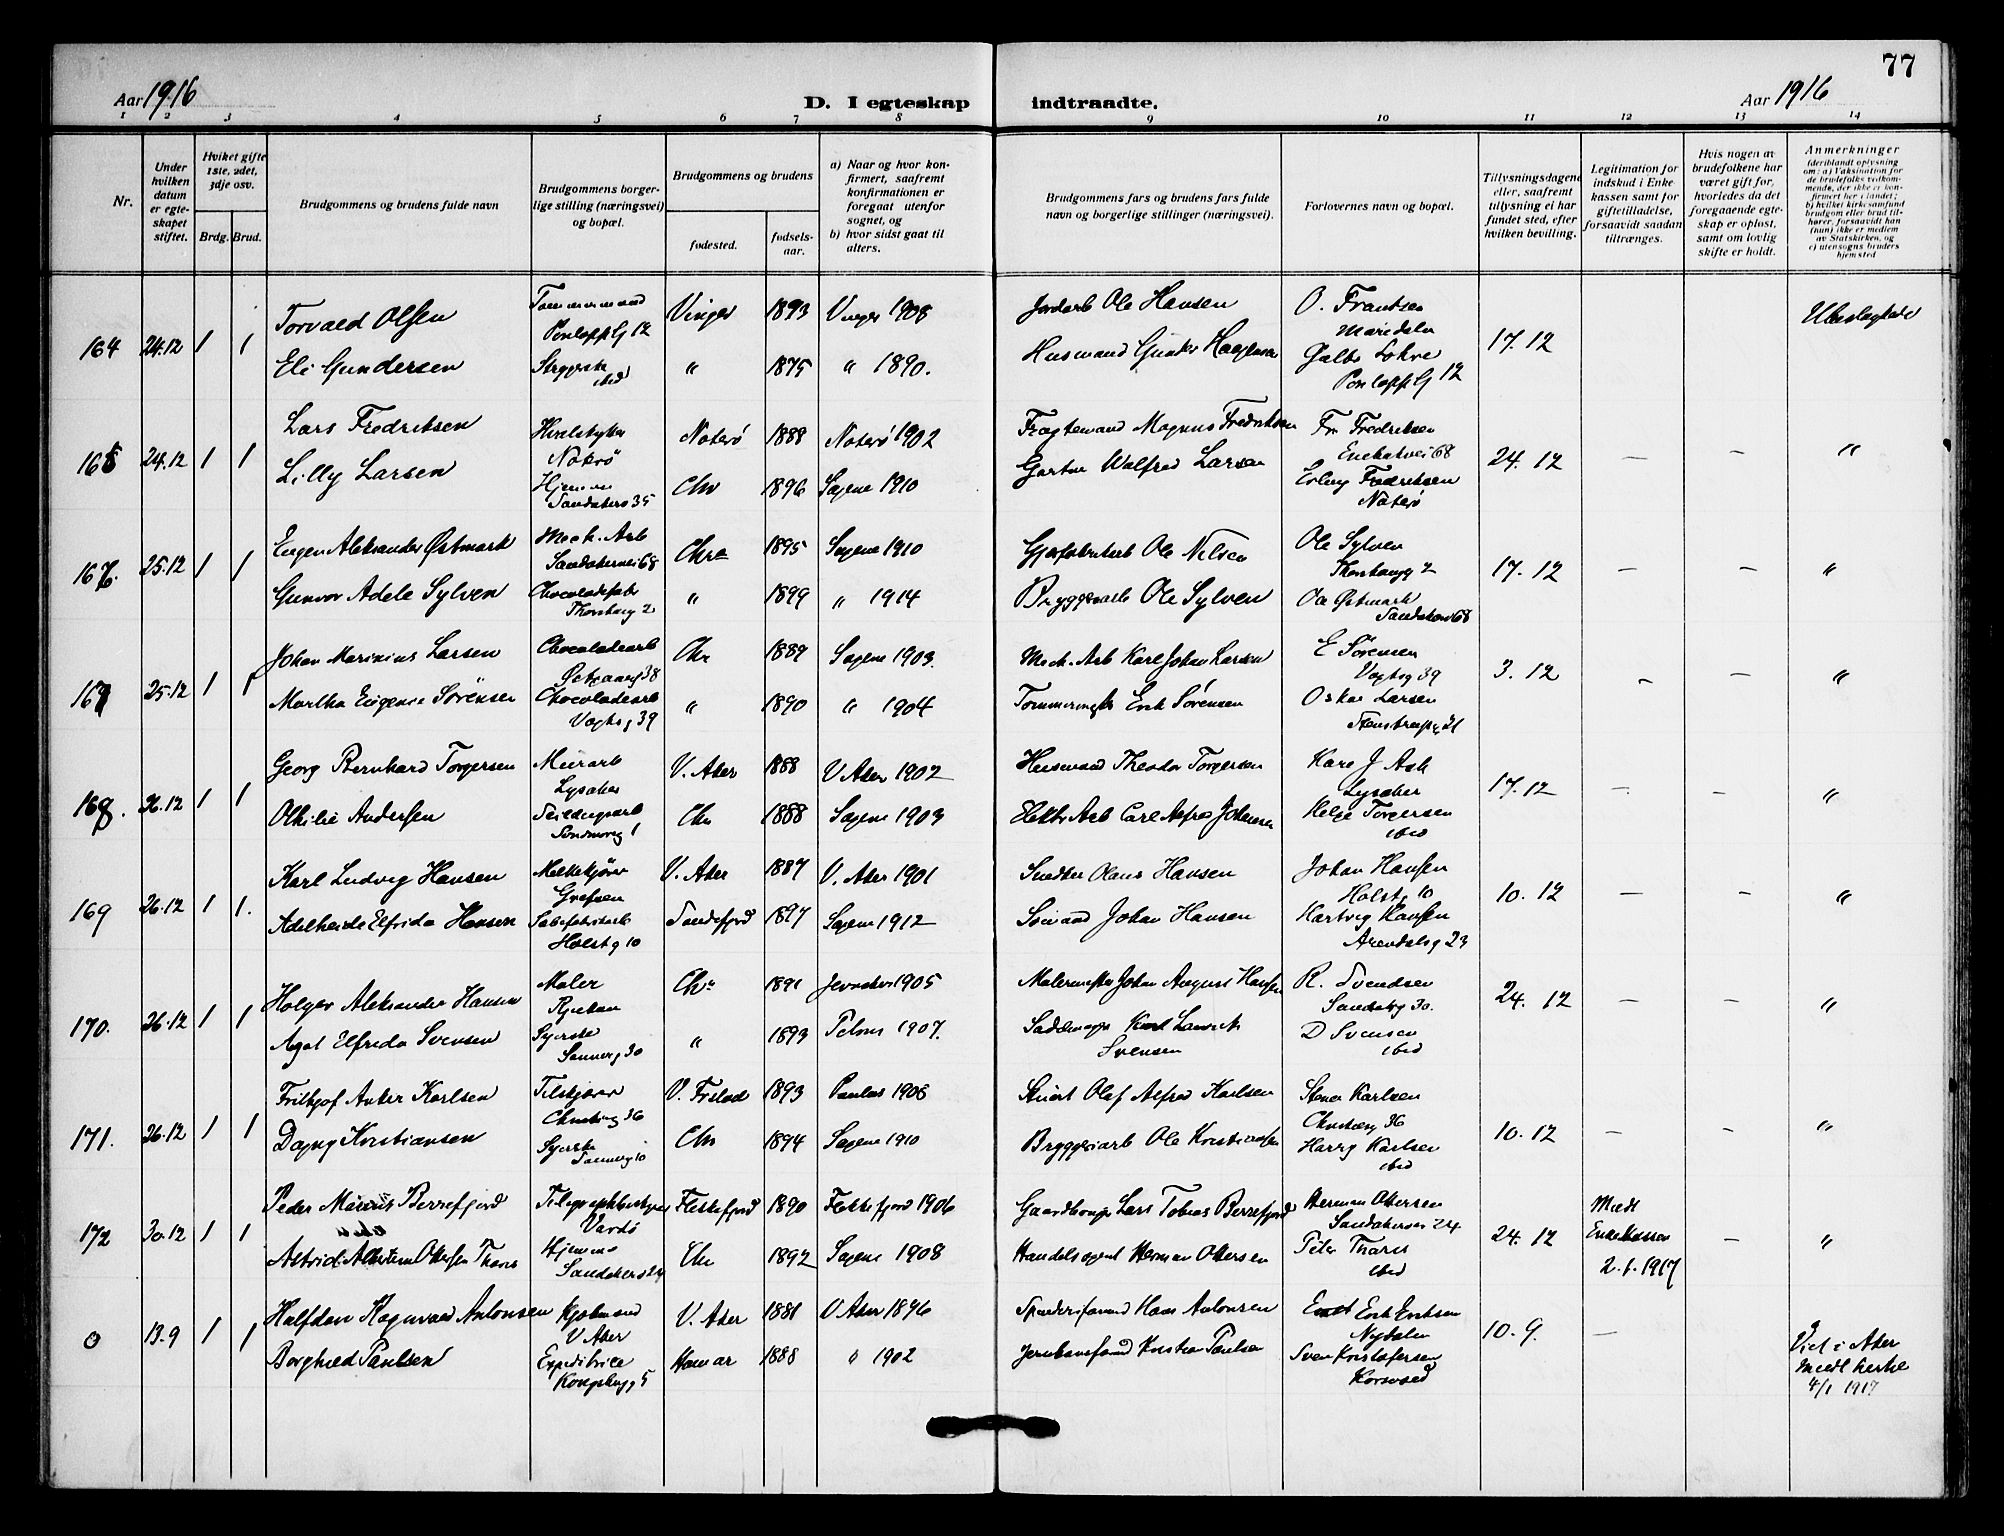 77
Aar 1916
D. I egteskap indtraadte.
Aar 1916
1 2 3 4 5 6 7 8 9 10 11 12 13 14
Nr.
Under hvilken datum er egteskapet stiftet.
Hvilket gifte 1ste, 2det, 3dje osv.
Brdg. Brud.
Brudgommens og brudens fulde navn
Brudgommens borgerlige stilling (næringsvei) og bopæl.
Brudgommens og brudens
fødested.
fødselsaar.
a) Naar og hvor konfirmert, saafremt konfirmationen er foregaat utenfor sognet, og
b) hvor sidst gaat til alters.
Brudgommens fars og brudens fars fulde navn og borgerlige stillinger (næringsvei).
Forlovernes navn og bopæl.
Tillysningsdagene eller, saafremt tillysning ei har fundet sted, efter hvilken bevilling.
Legitimation for indskud i Enkekassen samt for giftetilladelse, forsaavidt saadan tiltrænges.
Hvis nogen av brudefolkene har været gift før, hvorledes da det foregaaende egteskap er opløst, samt om lovlig skifte er holdt.
Anmerkninger
(deriblandt oplysning om: a) Vaksination for de brudefolks vedkommende, der ikke er konfirmert her i landet; b) hvilket kirkesamfund brudgom eller brud tilhører, forsaavidt han (hun) ikke er medlem av Statskirken, og c) utensogns bruders hjemsted
164 24.12 1 1 Torvald Olsen Vinger 1893 Vinger 1908 Jordarb Ole Hansen O. Frantsen Maridalen 17.12 Ubeslegtede
Eli Gundersen Strygerske ibid " 1875 " 1890. Husmand Gunder Haagensen
165 24.12 1 1 Lars Fredriksen Nøterø Nøterø 1888 Nøterø 1902 Fragtemand Magnus Fredriksen Fr Fredriksen 24.12 — — "
Lilly Larsen Hjemme Sandakerv 35 Chr 1896 Sagene 1910 Gartner Walfred Larsen Erling Fredriksen Nøterø
166. 25.12 1 1 Eugen Aleksander Østmark Mek. Arb Sandakervei 68 Chra 1895 Sagene 1910 Ole Nilsen Ole Sylven Thorsbergg 2 17.12 — — "
Gunvor Adele Sylven Chocoladefabr Thorsberg 2 " 1899 " 1914 Bryggeriarb Ole Sylven Ole Østmark Sandakerv 68
167 25.12 1 1 Johan Marinius Larsen Chocoladearb Chr 1889 Sagene 1903. Mek. Arb Karl Johan Larsen E Sørensen Vogtsg 39 3.12 - — "
Martha Eugenie Sørensen Chocoladearb Vogtsg 39 " 1890 " 1904 Tømmermester Erik Sørensen Oskar Larsen Stenstrupg 21
168. 26.12 1 1 Georg Bernhard Torgersen Murarb Lysaker V. Aker 1888 V Aker 1902 Husmand Theodor Torgersen Kare J Ask Lysaker 17.12 - - "
Othilie Andersen Chr 1888 Sagene 1903 Elektr Arb Carl Alfred Johansen Helge Torgersen ibid
169 26.12 1 1. Karl Ludvig Hansen Melkekjører Grefsen V. Aker 1887 V. Aker 1901 Snedker Olaus Hansen Johan Hansen Holstg 10 10.12 — — "
Adelheide Elfrida Hansen Holstg 10 Sandefjord 1897 Sagene 1912 Sømand Johan Hansen Hartvig Hansen Arendalsg 23
170. 26.12 1 1 Holger Aleksander Hansen Maler Rjukan Chr 1891 1905 Malermester Johan August Hansen R. Svendsen 24.12 — — "
Agot Elfrida Svensen Syerske Sannerg 30 " 1893 Petrus 1907. Svensen D Svensen ibid
171. 26.12 1 1 Frithjof Anker Karlsen V. Frstad 1893 Paulus 1908 Stuert Olaf Alfred Karlsen Stener Karlsen 10.12 — — "
Dagny Kristiansen Syerske Sannerg 10 Chr 1894 Sagene 1910 Bryggeriarb Ole Kristiansen Harry Karlsen ibid
172 30.12 1 1 Peder Marius Berrefjord Telegrafbestyrer Vardø Flekkefjord 1890 Flekkefjord 1906 Gaardbruger Lars Tobias Berrefjord Herman Ottersen Sandakervei 24 24.12 Medl Enkekassen 2.1.1917 — "
Astrid Ottersen Hjemme Sandakerv 24 Chr 1892 Sagene 1908 Handelsagent Herman Ottersen Peter ibid
0 13.9 1 1 Halfdan Ragnvald Antonsen V Aker V. Aker 1881 V Aker 1896 Hans Antonsen Erik Eriksen Nydalen 10.9. — Viet i Aker Medl kirke 4/1 1917
Borghild Paulsen Expeditrice Kongsbergg 5 Hamar 1888 " 1902 Jernbanemand Kristian Paulsen Sven Kristofersen Korsvold